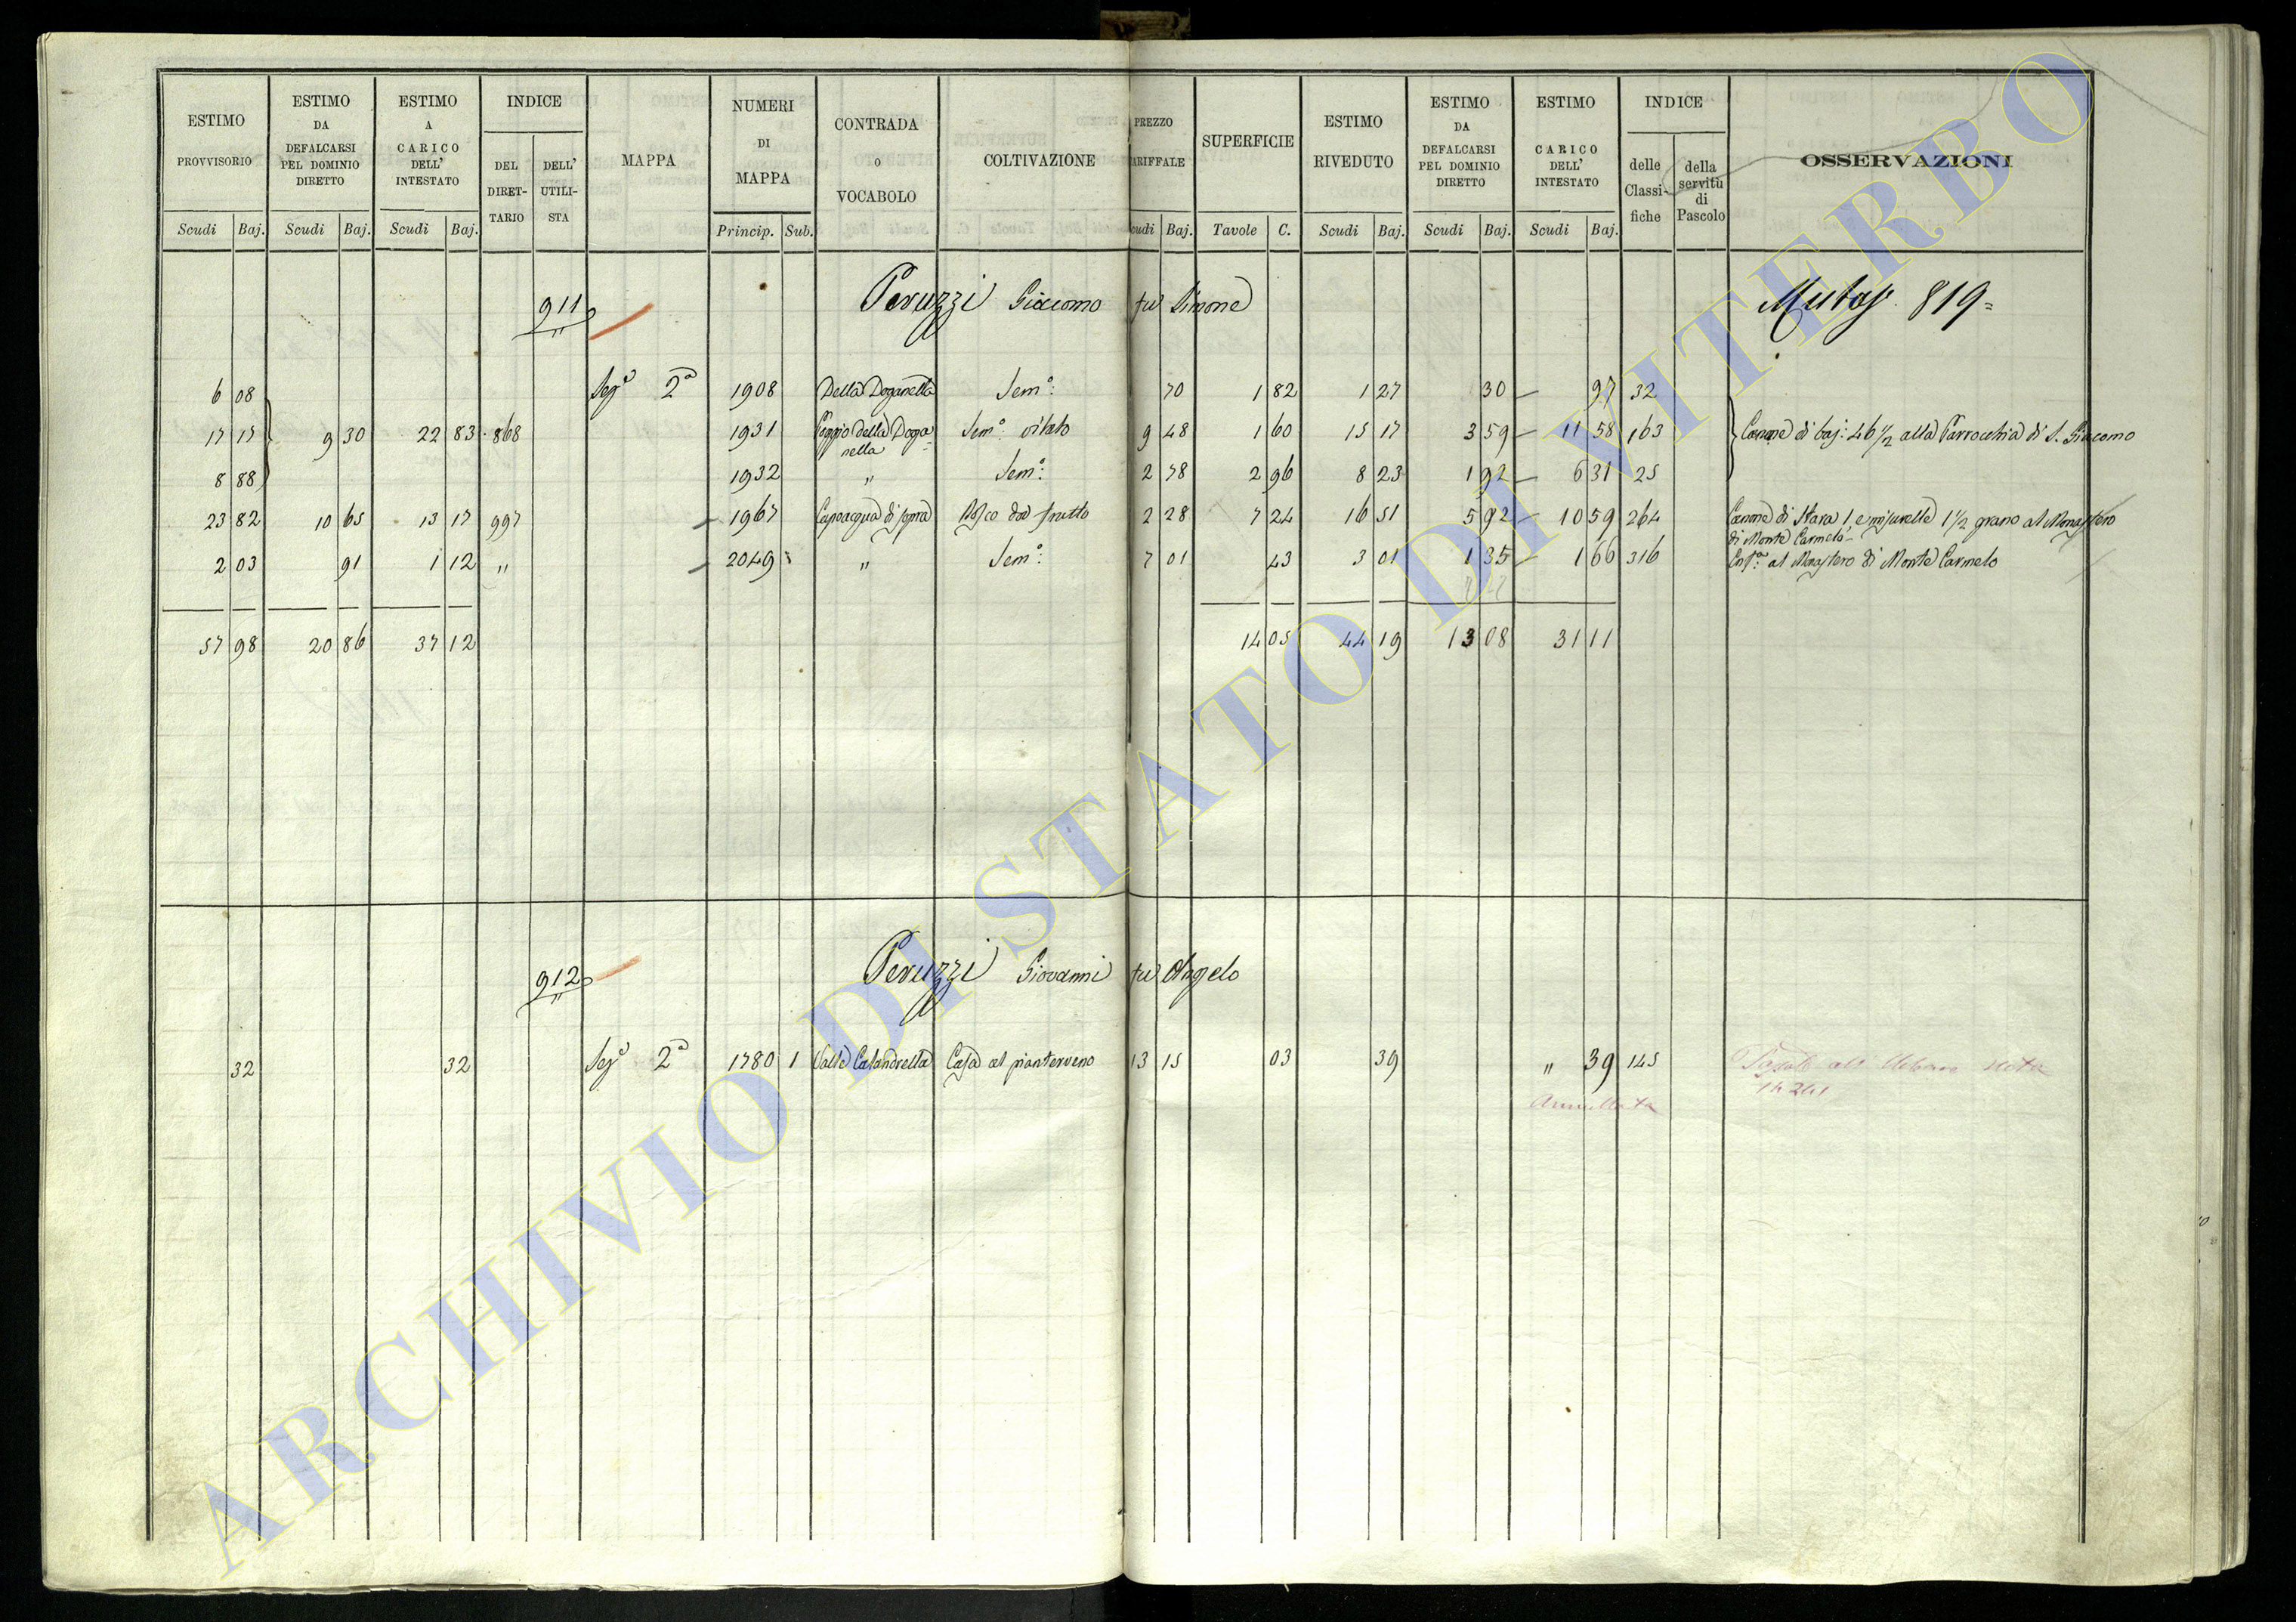 ESTIMO PROVVISORIO Scudi Baj.
ESTIMO DA DEFALCARSI PEL DOMINIO DIRETTO Scudi Baj.
ESTIMO A CARICO DELL' INTESTATO Scudi Baj.
INDICE DEL DIRET- TARIO DELL' UTILI- STA
MAPPA
NUMERI DI MAPPA Princip. Sub.
CONTRADA o VOCABOLO
COLTIVAZIONE
PREZZO ARIFFALE cudi Baj.
SUPERFICIE Tavole C.
ESTIMO RIVEDUTO Scudi Baj.
ESTIMO DA DEFALCARSI PEL DOMINIO DIRETTO Scudi Baj.
ESTIMO A CARICO DELL' INTESTATO Scudi Baj.
INDICE delle Classi- fiche della servitù di Pascolo
OSSERVAZIONI
911 Peruzzi Giacomo fu Simone Mutaz. 819=
6 08 Sez.e 2a 1908 Della Doganella Sem.o 70 1 82 1 27 30 97 32
17 17 9 30 22 83 868 1931 Poggio della Doga- Sem.o vitato 9 48 1 60 15 17 3 59 11 58 163 Canone di baj: 46 1/2 alla Parrocchia di S. Giacomo
nella
8 88 1932 " Sem.o 2 78 2 96 8 23 1 92 6 31 25
23 82 10 65 13 17 997 1967 Capoacqua di sopra Bosco da frutto 2 28 7 24 16 51 5 92 10 59 264 Canone di Stara 1, e misurelle 1 1/2 grano al Monastero
di Monte Carmelo
2 03 91 1 12 " 2049 " Sem.o 7 01 43 3 01 1 35 1 66 316 Ent.a al Monastero di Monte Carmelo
57 98 20 86 37 12 14 05 44 19 13 08 31 11
912 Peruzzi Giovanni fu Angelo
32 32 Sez.e 2a 1780 1 Valle Calandrella Casa al pianterreno 13 15 03 39 " 39 145
Annullata
ARCHIVIO DI STATO DI VITERBO